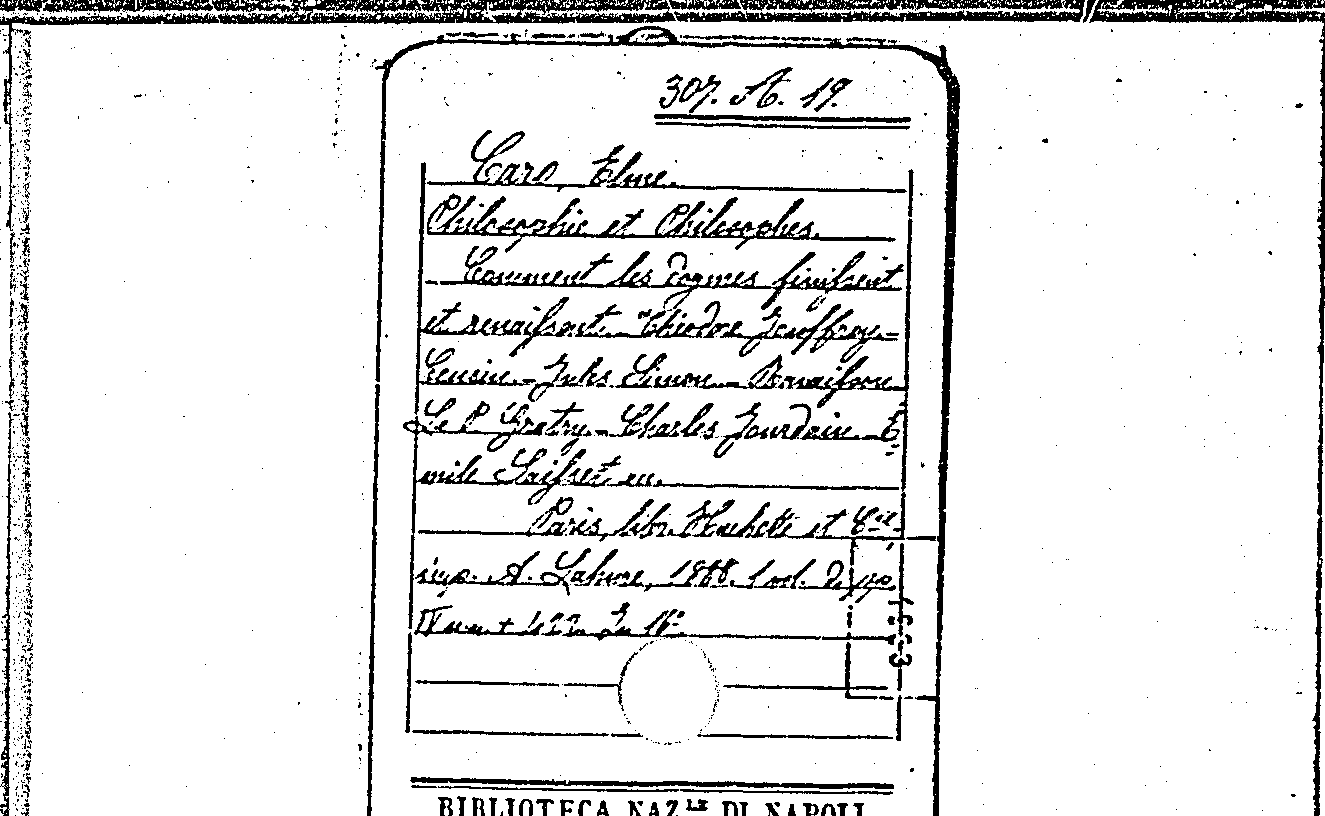 307. A. 19.
Caro, Elme.
Philosophie et Philosophes.
Comment les dogmes finissent
et renaissent. Théodore Jouffroy.=
Cousin.- Jules Simon.- Ravaisson.
Le P. Gratry.- Charles Jourdain.- E
mile Saisset ec.
Paris, libr. Hachette et C.ie,
imp. A. Lahure, 1888. 1 vol. di pp.
In 16°
BIBLIOTECA NAZ.LE DI NAPOLI